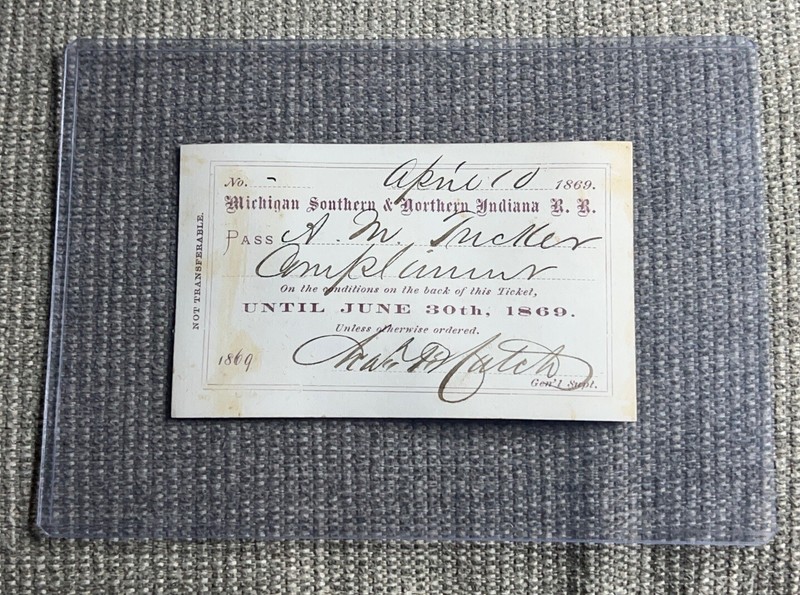 NOT TRANSFERABLE.
No. - April 10 1869.
Michigan Southern & Northern Indiana R. R.
PASS A. M. Tucker
On the conditions on the back of this Ticket,
UNTIL JUNE 30th, 1869.
Unless otherwise ordered.
1869 Hatch
Gen'l Supt.